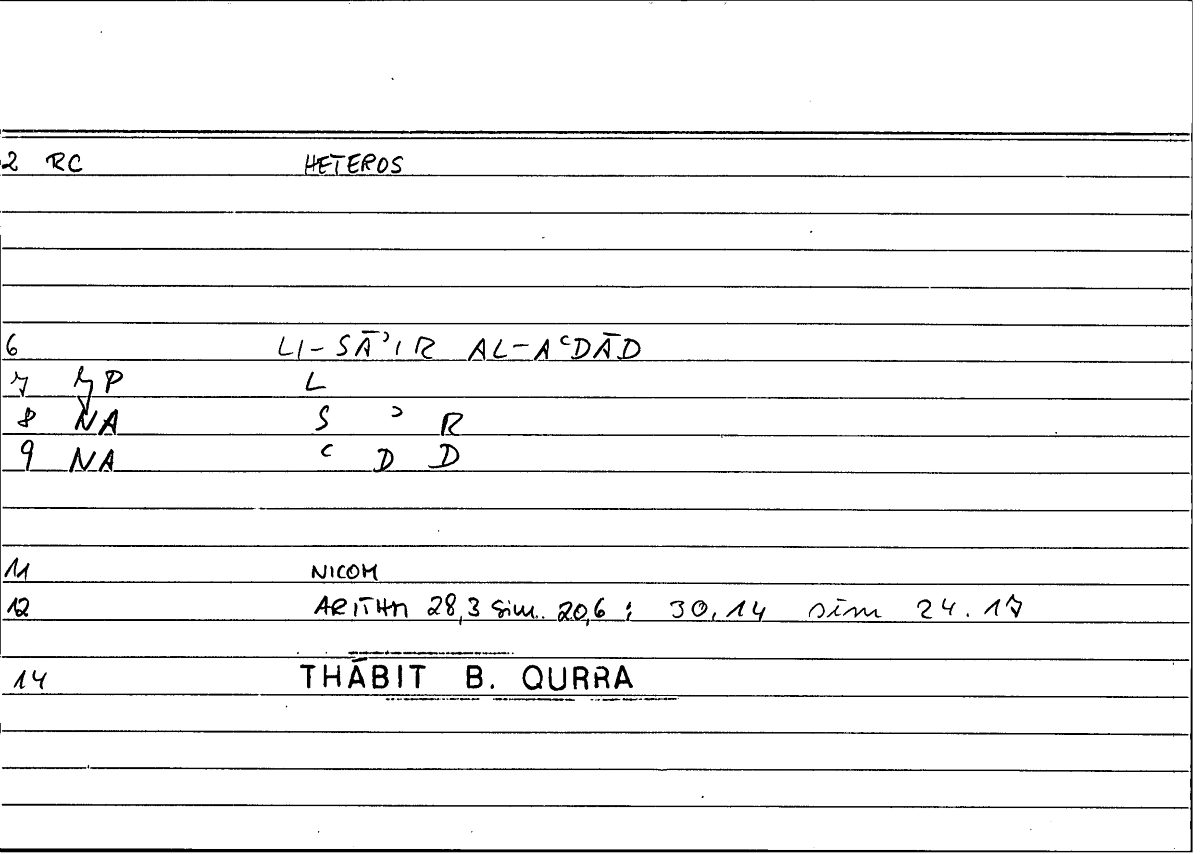 2 RC HETEROS
6 LI-SĀʾIR AL-AʿDĀD
7 P L
8 NA S ʾ R
9 NA ʿ D D
11 NICOM
12 ARITHM 28,3 sim. 20,6 ; 30,14 sim 24.17
14 THĀBIT B. QURRA